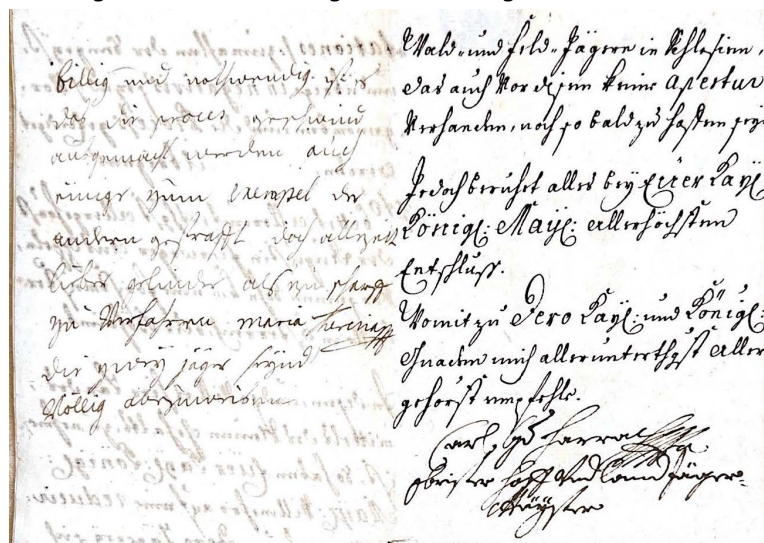 billig und nothwendig ist es
das die process geschwind
ausgemacht werden auch
einige zum exempel der
andern gestrafft doch allzeit
lieber gelinder als zu scharff
zu Verfahren maria theresia
die zwey jäger seynd
Völlig abzuweisen
Wald- und Feld-Jägern in Schlesien,
das auch Vor disen keine apertur
Verhanden, noch so bald zu hoffen seye
Jedoch beruhet alles bey Eüer Kayl:
Königl: Mayl: allerhöchsten
Entschluss.
Womit zu Dero Kayl: und Königl:
Gnaden mich allerunterthgst aller
gehorst empfehle.
Carl Harrach
Obrister Hoff und Land Jäger-
Mayster